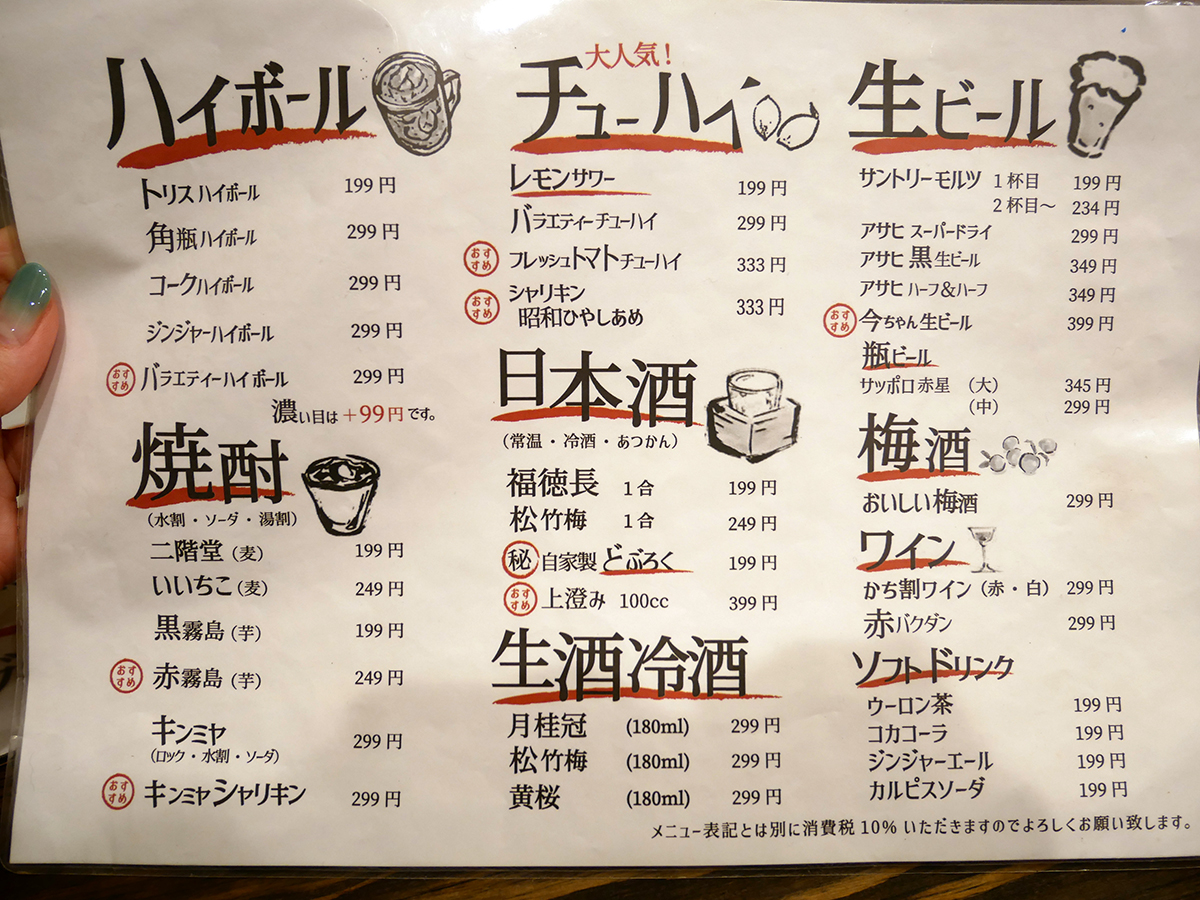 ハイボール
トリスハイボール 199円
角瓶ハイボール 299円
コークハイボール 299円
ジンジャーハイボール 299円
おすすめ バラエティーハイボール 299円
濃い目は+99円です。
焼酎
(水割・ソーダ・湯割)
二階堂(麦) 199円
いいちこ(麦) 249円
黒霧島(芋) 199円
おすすめ 赤霧島(芋) 249円
キンミヤ 299円
(ロック・水割・ソーダ)
おすすめ キンミヤシャリキン 299円
大人気!
チューハイ
レモンサワー 199円
バラエティーチューハイ 299円
おすすめ フレッシュトマトチューハイ 333円
おすすめ シャリキン
昭和ひやしあめ 333円
日本酒
(常温・冷酒・あつかん)
福徳長 1合 199円
松竹梅 1合 249円
秘 自家製どぶろく 199円
おすすめ 上澄み 100cc 399円
生酒冷酒
月桂冠 (180ml) 299円
松竹梅 (180ml) 299円
黄桜 (180ml) 299円
生ビール
サントリーモルツ 1杯目 199円
2杯目〜 234円
アサヒ スーパードライ 299円
アサヒ 黒生ビール 349円
アサヒ ハーフ&ハーフ 349円
おすすめ 今ちゃん生ビール 399円
瓶ビール
サッポロ赤星 (大) 345円
(中) 299円
梅酒
おいしい梅酒 299円
ワイン
かち割ワイン(赤・白) 299円
赤バクダン 299円
ソフトドリンク
ウーロン茶 199円
コカコーラ 199円
ジンジャーエール 199円
カルピスソーダ 199円
メニュー表記とは別に消費税10%いただきますのでよろしくお願い致します。